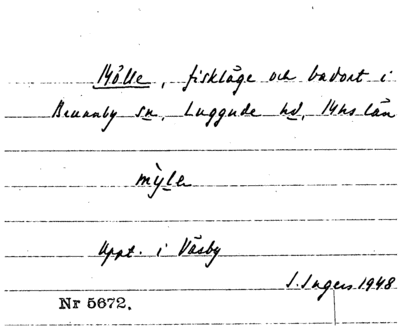 Mölle, fiskläge och badort i
Brunnby sn, Luggude hd, Mhs län
mỳle
Uppt. i Väsby
I. Ingers 1948
Nr 5672.